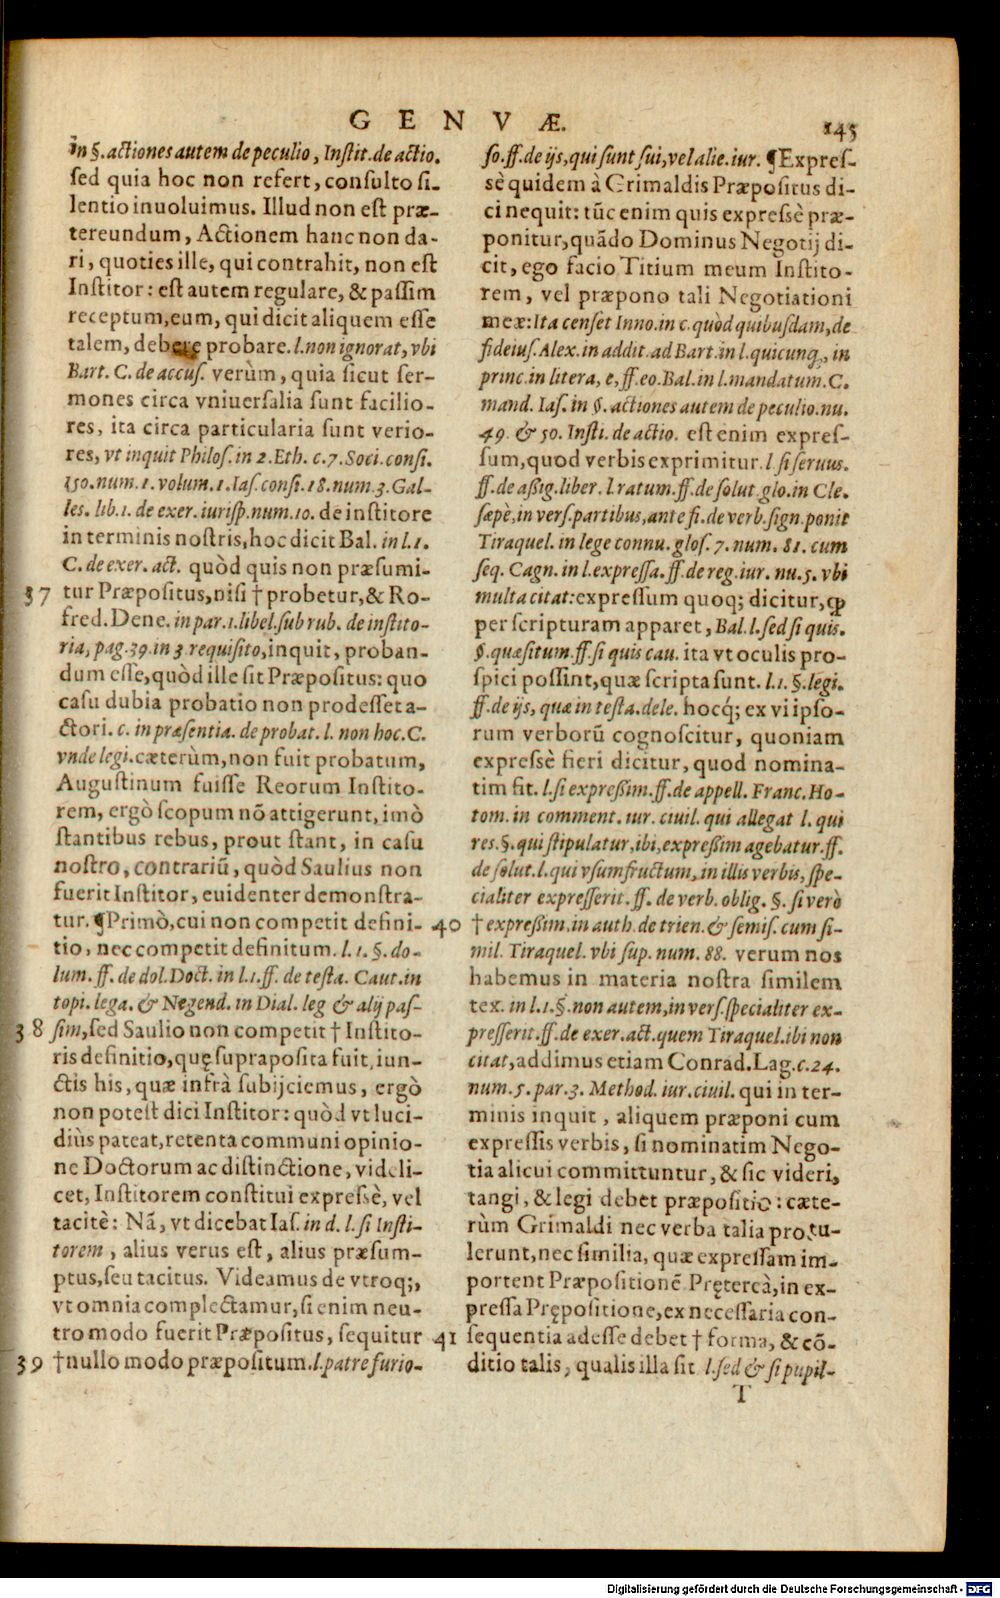 GENVÆ.
145
in §. actiones autem de peculio, Instit. de actio.
sed quia hoc non refert, consulto si-
lentio inuoluimus. Illud non est præ-
tereundum, Actionem hanc non da-
ri, quoties ille, qui contrahit, non est
Institor: est autem regulare, & passim
receptum, eum, qui dicit aliquem esse
talem, debere probare. l. non ignorat, vbi
Bart. C. de accus. verùm, quia sicut ser-
mones circa vniuersalia sunt facilio-
res, ita circa particularia sunt verio-
res, vt inquit Philos. in 2. Eth. c. 7. Soci. consi.
150. num. 1. volum. 1. Ias. consi. 18. num. 3. Gal-
les. lib. 1. de exer. iurisp. num. 10. de institore
in terminis nostris, hoc dicit Bal. in l. 1.
C. de exer. act. quòd quis non præsumi-
37 tur Præpositus, nisi † probetur, & Ro-
fred. Dene. in par. 1. libel. sub rub. de instito-
ria, pag. 39. in 3 requisito, inquit, proban-
dum esse, quòd ille sit Præpositus: quo
casu dubia probatio non prodesset a-
ctori. c. in præsentia. de probat. l. non hoc. C.
vnde legi. cæterùm, non fuit probatum,
Augustinum fuisse Reorum Instito-
rem, ergò scopum nō attigerunt, imò
stantibus rebus, prout stant, in casu
nostro, contrariū, quòd Saulius non
fuerit Institor, euidenter demonstra-
tur. ¶ Primò, cui non competit defini-
tio, nec competit definitum. l. 1. §. do-
lum. ff. de dol. Doct. in l. 1. ff. de testa. Caut. in
topi. lega. & Negend. in Dial. leg & alij pas-
38 sim, sed Saulio non competit † Instito-
ris definitio, quę supraposita fuit, iun-
ctis his, quæ infrà subijciemus, ergò
non potest dici Institor: quòd vt luci-
diùs pateat, retenta communi opinio-
ne Doctorum ac distinctione, videli-
cet, Institorem constitui expressè, vel
tacitè: Nā, vt dicebat Ias. in d. l. si Insti-
torem, alius verus est, alius præsum-
ptus, seu tacitus. Videamus de vtroq;,
vt omnia complectamur, si enim neu-
tro modo fuerit Præpositus, sequitur
39 † nullo modo præpositum. l. pater furio-
so. ff. de ijs, qui sunt sui, vel alie. iur. ¶ Expres-
sè quidem à Grimaldis Præpositus di-
ci nequit: tūc enim quis expressè præ-
ponitur, quādo Dominus Negotij di-
cit, ego facio Titium meum Instito-
rem, vel præpono tali Negotiationi
meæ: Ita censet Inno. in c. quòd quibusdam, de
fideius. Alex. in addit. ad Bart. in l. quicunq;, in
princ. in litera, e, ff. eo. Bal. in l. mandatum. C.
mand. Ias. in §. actiones autem de peculio. nu.
49. & 50. Insti. de actio. est enim expres-
sum, quod verbis exprimitur. l. si seruus.
ff. de aßig. liber. l. ratum. ff. de solut. glo. in Cle.
sæpè, in vers. partibus, ante fi. de verb. sign. ponit
Tiraquel. in lege connu. glos. 7. num. 81. cum
seq. Cagn. in l. expressa. ff. de reg. iur. nu. 5. vbi
multa citat: expressum quoq; dicitur, ꝙ
per scripturam apparet, Bal. l. sed si quis.
§. quæsitum. ff. si quis cau. ita vt oculis pro-
spici possint, quæ scripta sunt. l. 1. §. legi.
ff. de ijs, quæ in testa. dele. hocq́; ex vi ipso-
rum verborū cognoscitur, quoniam
expressè fieri dicitur, quod nomina-
tim fit. l. si expreßim. ff. de appell. Franc. Ho-
tom. in comment. iur. ciuil. qui allegat l. qui
res. §. qui stipulatur, ibi, expreßim agebatur. ff.
de solut. l. qui vsumfructum, in illis verbis, spe-
cialiter expresserit. ff. de verb. oblig. §. si verò
40 † expreßim, in auth. de trien. & semis. cum si-
mil. Tiraquel. vbi sup. num. 88. verum nos
habemus in materia nostra similem
tex. in l. 1. §. non autem, in vers. specialiter ex-
presserit. ff. de exer. act. quem Tiraquel. ibi non
citat, addimus etiam Conrad. Lag. c. 24.
num. 5. par. 3. Method. iur. ciuil. qui in ter-
minis inquit, aliquem præponi cum
expressis verbis, si nominatim Nego-
tia alicui committuntur, & sic videri,
tangi, & legi debet præpositio: cæte-
rùm Grimaldi nec verba talia protu-
lerunt, nec similia, quæ expressam im-
portent Præpositionē Pręterea, in ex-
pressa Prępositione, ex necessaria con-
41 sequentia adesse debet † forma, & cō-
ditio talis, qualis illa sit l. sed & si pupil-
T
Digitalisierung gefördert durch die Deutsche Forschungsgemeinschaft - DFG